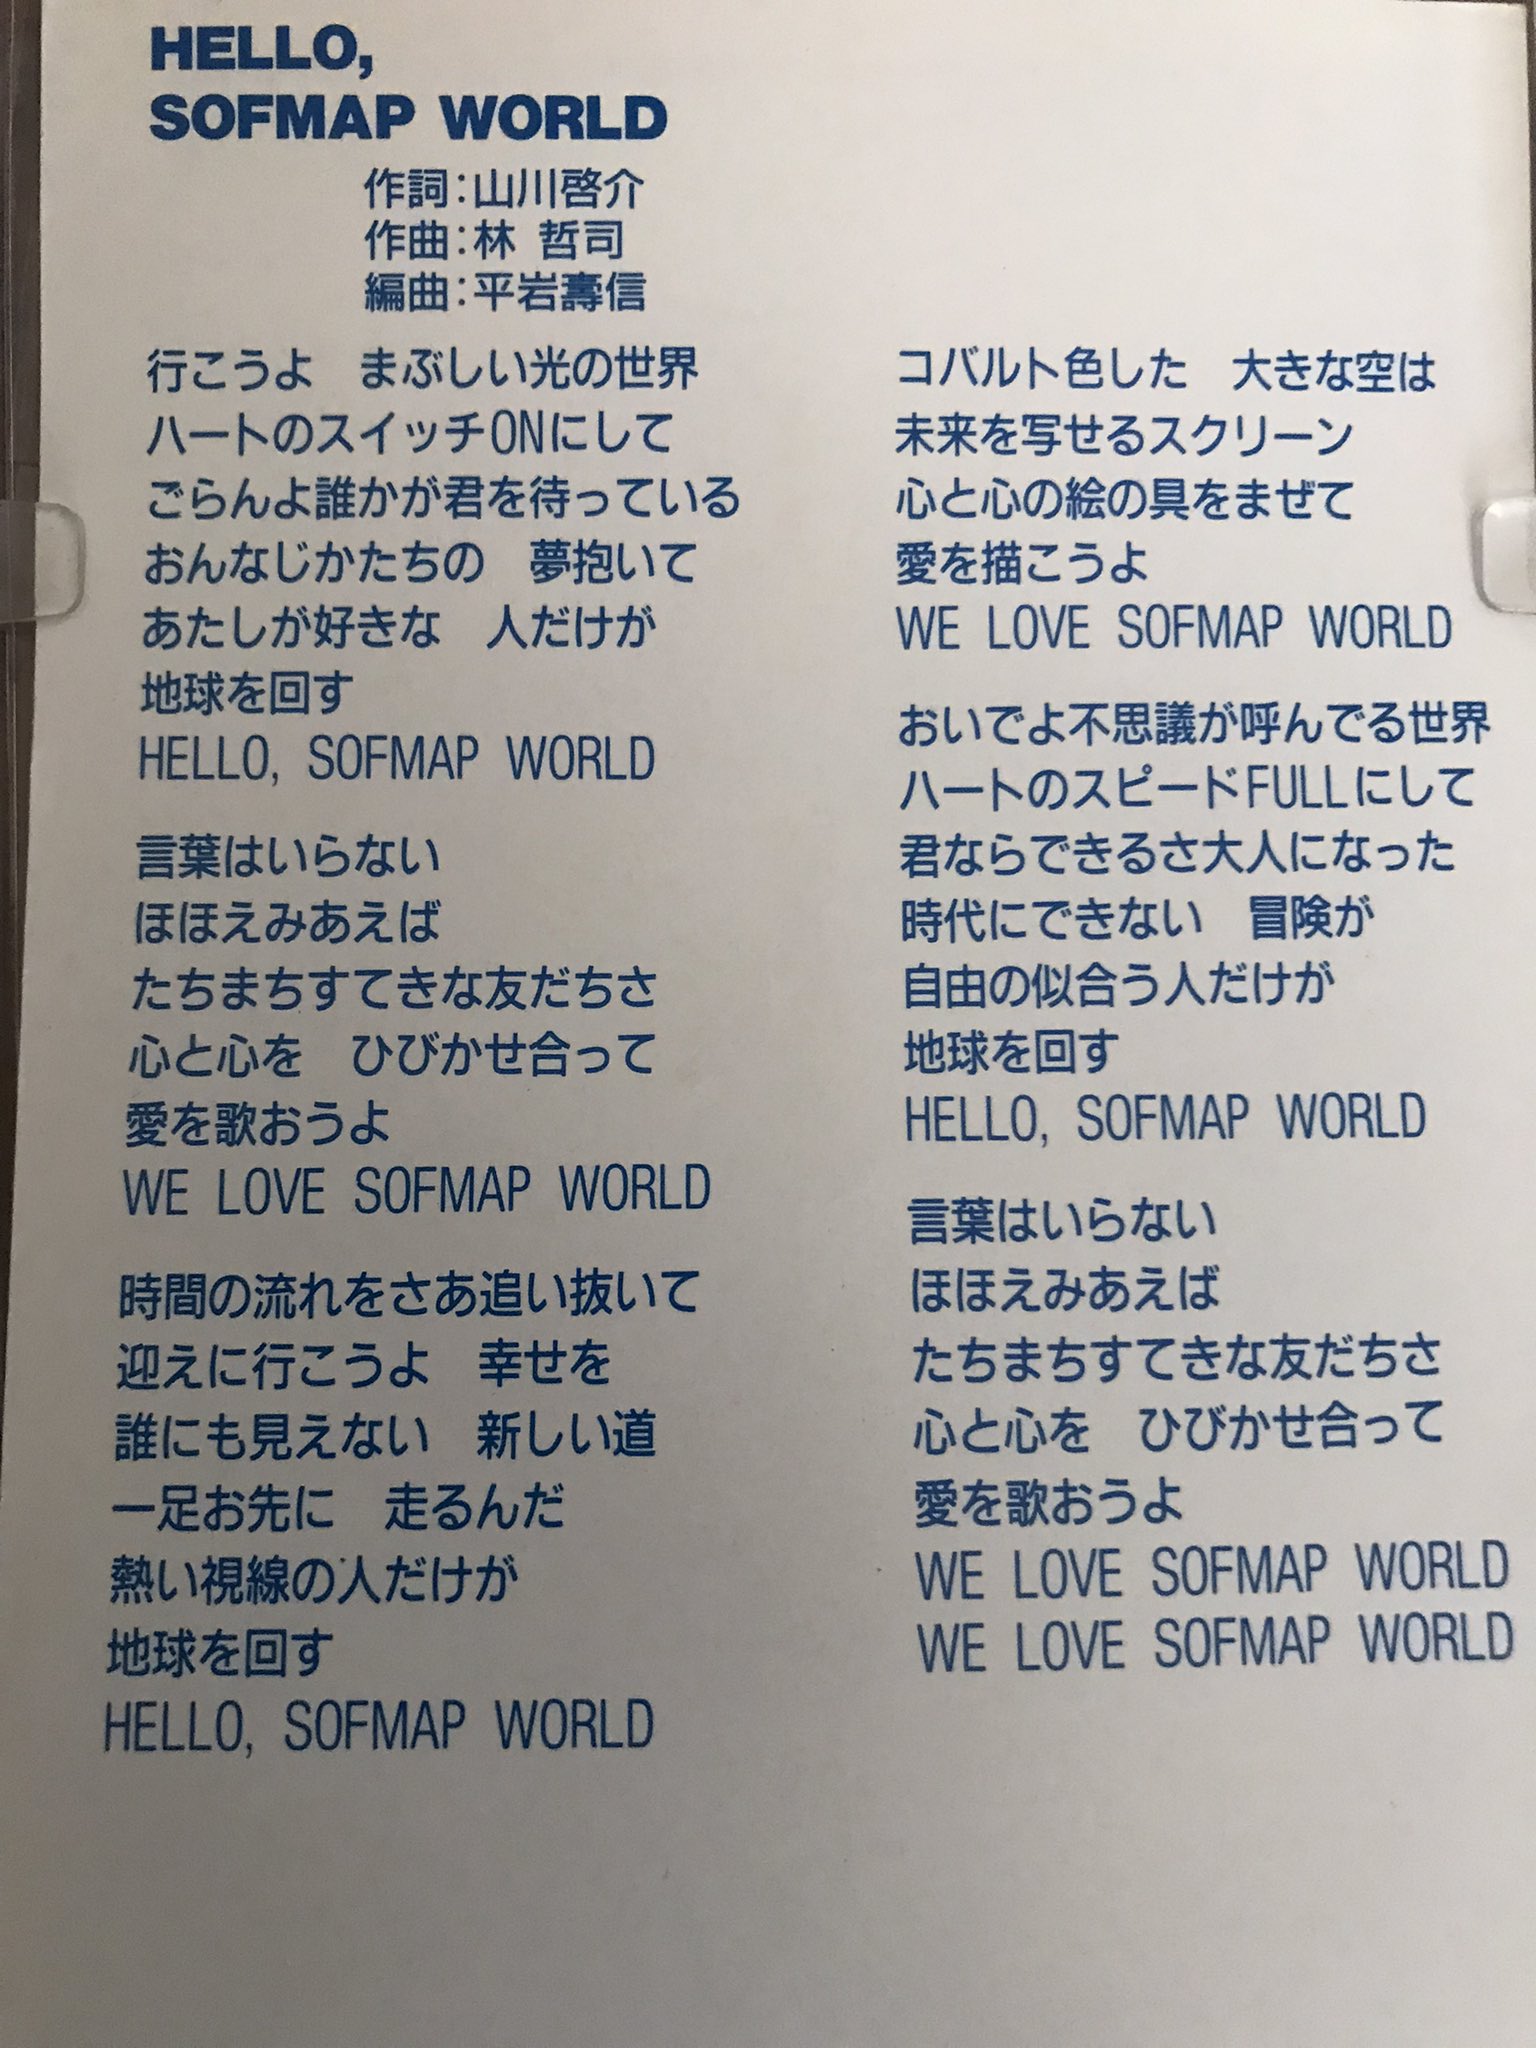 HELLO,
SOFMAP WORLD
作詞：山川啓介
作曲：林 哲司
編曲：平岩壽信
行こうよ　まぶしい光の世界
ハートのスイッチONにして
ごらんよ誰かが君を待っている
おんなじかたちの　夢抱いて
あたしが好きな　人だけが
地球を回す
HELLO, SOFMAP WORLD
言葉はいらない
ほほえみあえば
たちまちすてきな友だちさ
心と心を　ひびかせ合って
愛を歌おうよ
WE LOVE SOFMAP WORLD
時間の流れをさあ追い抜いて
迎えに行こうよ　幸せを
誰にも見えない　新しい道
一足お先に　走るんだ
熱い視線の人だけが
地球を回す
HELLO, SOFMAP WORLD
コバルト色した　大きな空は
未来を写せるスクリーン
心と心の絵の具をまぜて
愛を描こうよ
WE LOVE SOFMAP WORLD
おいでよ不思議が呼んでる世界
ハートのスピードFULLにして
君ならできるさ大人になった
時代にできない　冒険が
自由の似合う人だけが
地球を回す
HELLO, SOFMAP WORLD
言葉はいらない
ほほえみあえば
たちまちすてきな友だちさ
心と心を　ひびかせ合って
愛を歌おうよ
WE LOVE SOFMAP WORLD
WE LOVE SOFMAP WORLD